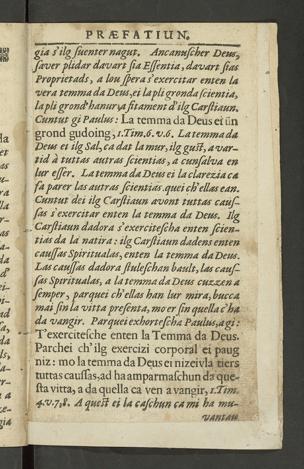 PRÆFATIUN.
gia s'ilg suenter nagut. Ancanuscher Deus,
sæver plidar davart sia Essentia, davart sias
Proprietads, a lou spera s'exercitar enten la
vera temma da Deus, ei la pli gronda scientia,
la pli grond' hanur, a fitament d'ilg Carstiaun.
Cuntut gi Paulus: La temma da Deus ei ün
grond gudoing, 1. Tim. 6. v. 6. La temma da
Deus ei ilg Sal, ca dat la mur, ilg gust, a var-
tid à tuttas autras scientias, a cunsalva en
lur esser. La temma da Deus ei la clarezia ca
fa parer las autras scientias quei ch'ellas ean.
Cuntut dei ilg Carstiaun avont tuttas caus-
sas s'exercitar enten la temma da Deus. Ilg
Carstiaun dadora s'exercitescha enten scien-
tias da la natira: ilg Carstiaun dadens enten
caussas Spiritualas, enten la temma da Deus.
Las caussas dadora stuleschan bault, las caus-
sas Spiritualas, a la temma da Deus cuzzen a
semper, parquei ch'ellas han lur mira, bucca
mai sin la vitta presenta, mo er sin quella c'ha
da vangir. Parquei exhortescha Paulus, a gi:
T'exercitesche enten la Temma da Deus.
Parchei ch'ilg exercizi corporal ei paug
niz: mo la temma da Deus ei nizeivla tiers
tuttas caussas, ad ha amparmaschun da que-
sta vitta, a da quella ca ven a vangir, 1. Tim.
4. v. 7, 8. A quest ei la caschun ca mi ha mu-
vantau